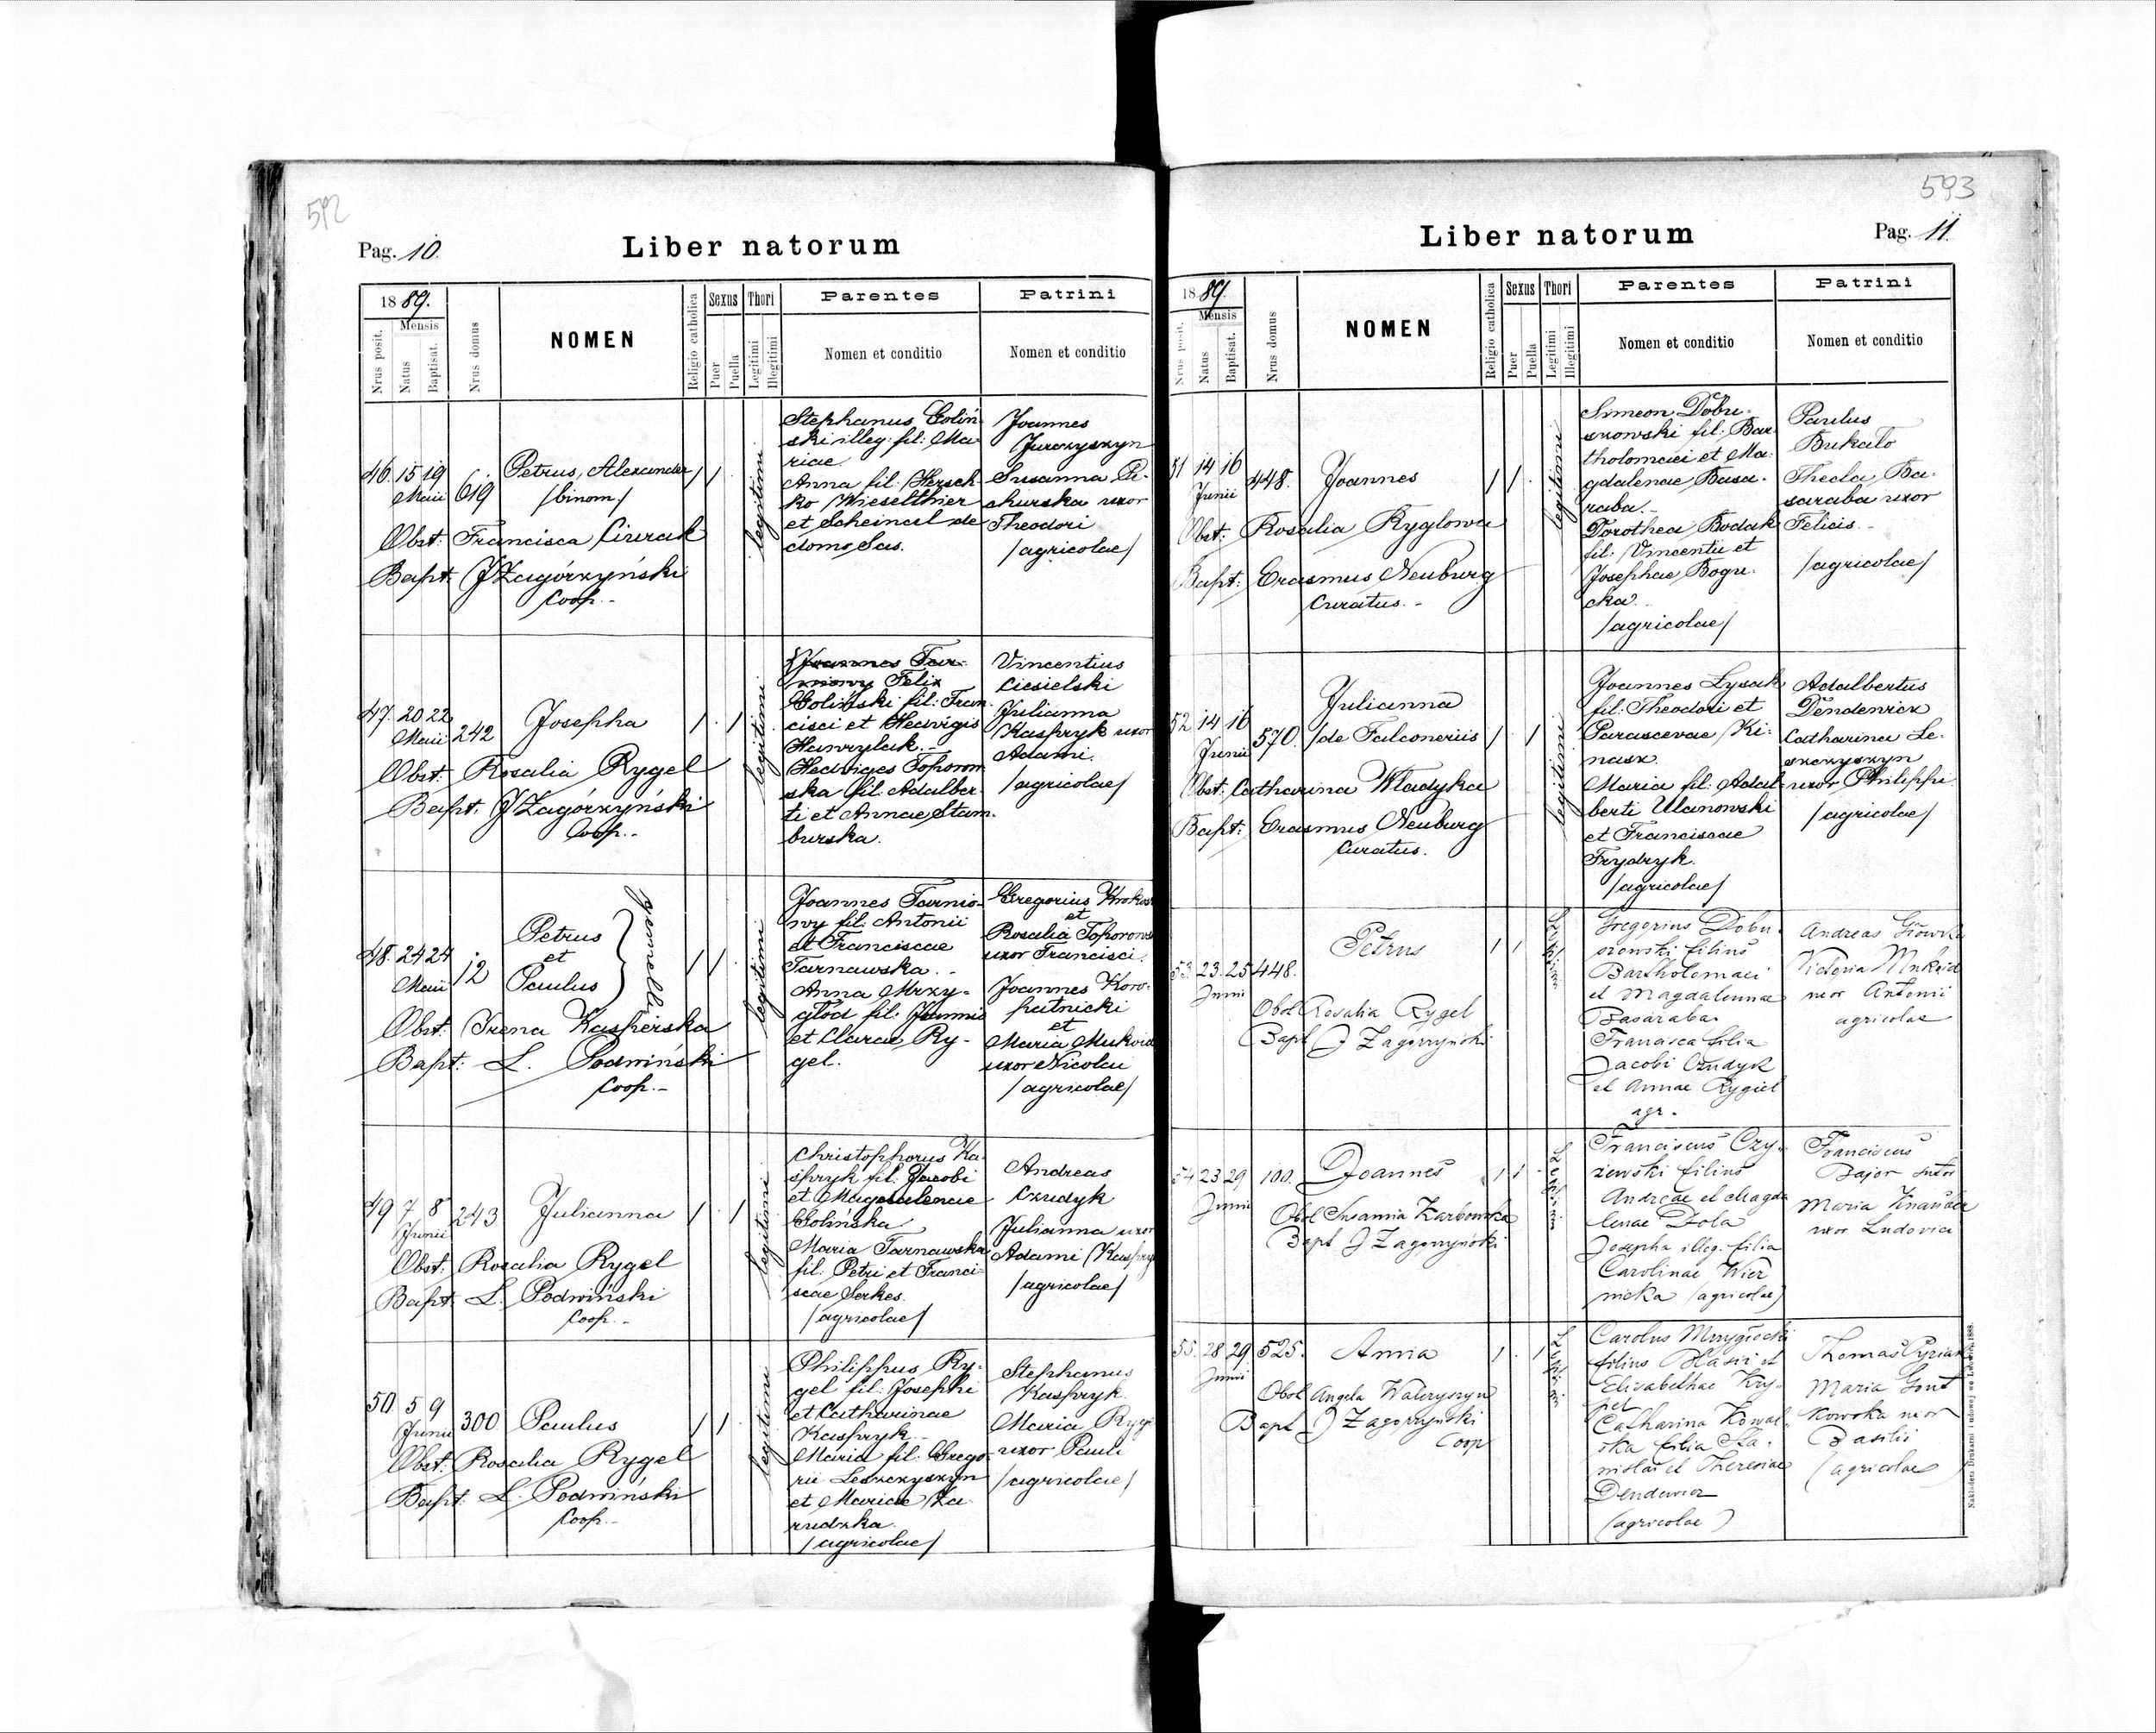 592
Pag. 10.
Liber natorum
1889.
Mensis
Nrus posit.
Natus
Baptisat.
Nrus domus
NOMEN
Religio catholica
Sexus
Puer
Puella
Thori
Legitimi
Illegitimi
Parentes
Nomen et conditio
Patrini
Nomen et conditio
46. 15 19
Maii
619
Petrus, Alexander
/binom/
Obst: Francisca
Bapt: J Zagórzyński
Coop. -
legitimi
Stephanus Goliń-
ski illeg: fil: Ma-
riae.
Anna fil: Hersch-
ko Wieselthier
et Scheindel de
domo Sas.
Joannes
Jurczyszyn
Susanna
uxor
Theodori
/agricolae/
47. 20 22
Maii 242
Josepha
Obst: Rosalia Rygel
Bapt: J Zagórzyński
Coop. -
legitimi
Felix
Goliński fil: Fran-
cisci et Hedvigis
Hawrylak. -
Hedviges Toporow-
ska fil: Adalber-
ti et Annae Stam-
burska.
Vincentius
Ciesielski
Julianna
Kaspryk uxor
Adami.
/agricolae/
48. 24 24
Maii 12
Petrus
et
Paulus
gemelli
Obst: Irena Kasperska
Bapt: L. Podwiński
Coop. -
legitimi
Joannes Tarnio-
wy fil: Antonii
et Franciscae
Tarnawska. -
Anna Mrzy-
głod fil: Joannis
et Clarae Ry-
gel.
Gregorius
et
Rosalia
uxor Francisci.
Joannes Koro-
patnicki
et
Maria
uxor Nicolai
/agricolae/
49 7 8
Junii
243
Julianna
Obst: Rosalia Rygel
Bapt: L. Podwiński
Coop. -
legitimi
Christophorus Ka-
spryk fil: Jacobi
et Magdalenae
Golińska
Maria Tarnawska
fil: Petri et Franci-
scae Serkes.
/agricolae/
Andreas
Czudyk
Julianna uxor
Adami
/agricolae/
50. 5 9
Junii
300
Paulus
Obst: Rosalia Rygel
Bapt: L. Podwiński
Coop. -
legitimi
Philippus Ry-
gel fil: Josephi
et Catharinae
Kaspryk. -
Maria fil: Grego-
rii Leszczyszyn
et Mariae Za-
rudzka.
/agricolae/
Stephanus
Kaspryk
Maria
uxor Pauli
/agricolae/
593
Liber natorum
Pag. 11.
1889.
Mensis
Nrus posit.
Natus
Baptisat.
Nrus domus
NOMEN
Religio catholica
Sexus
Puer
Puella
Thori
Legitimi
Illegitimi
Parentes
Nomen et conditio
Patrini
Nomen et conditio
51 14 16
Junii
448.
Joannes
Obst: Rosalia Ryglowa
Bapt: Erasmus Neuburg
Curatus. -
legitimi
Simeon Dobru-
szowski fil: Bar-
tholomaei et Ma-
gdalenae Basa-
raba. -
Dorothea Bodak
fil: Vincentii et
Josephae Bogu-
cka.
/agricolae/
Paulus
Bukało
Thecla Ba-
saraba uxor
Felicis. -
/agricolae/
52 14 16
Junii 570.
Julianna
/de Falconeriis/
Obst: Catharina Władyka
Bapt: Erasmus Neuburg
Curatus.
legitimi
Joannes Lysak
fil: Theodori et
Parascevae Ki-
nasz.
Maria fil: Adal-
berti Ulanowski
et Franciscae
Frydryk.
/agricolae/
Adalbertus
Dendewicz
Catharina Le-
szczyszyn
uxor Philippi
/agricolae/
53 23. 25 448.
Junii
Petrus
Obst Rosalia Rygel
Bapt J Zagorzyński
Gregorius
filius
Bartholomaei
et Magdalennae
Basaraba.
Francisca filia
Jacobi Czudyk
et Annae Rygiel
agr.
Andreas
Victoria
uxor Antonii
agricolae
54 23 29 100.
Junii
Joannes
Obst Susanna Zarbowska
Bapt J Zagorzyński
Franciscus Czy-
żewski filius
Andreae et Magda
lenae Dola
Josepha illeg. filia
Carolinae Wier
nicka (agricolae)
Franciscus
Bajor sutor
Maria
uxor Ludovici
55. 28 29 525.
Junii
Anna
Obst Angela Waleryszyn
Bapt J Zagorzyński
Coop
Carolus Mrzygłocki
filius Blasii et
Elisabethae Kry-
pel
Catharina Kowal-
ska filia Sta-
nislai et Theresiae
Dendewicz
(agricolae)
Thomas
Maria Gont
kowska uxor
Basilii
(agricolae
Nakładem Drukarni Ludowej we Lwowie, 1888.